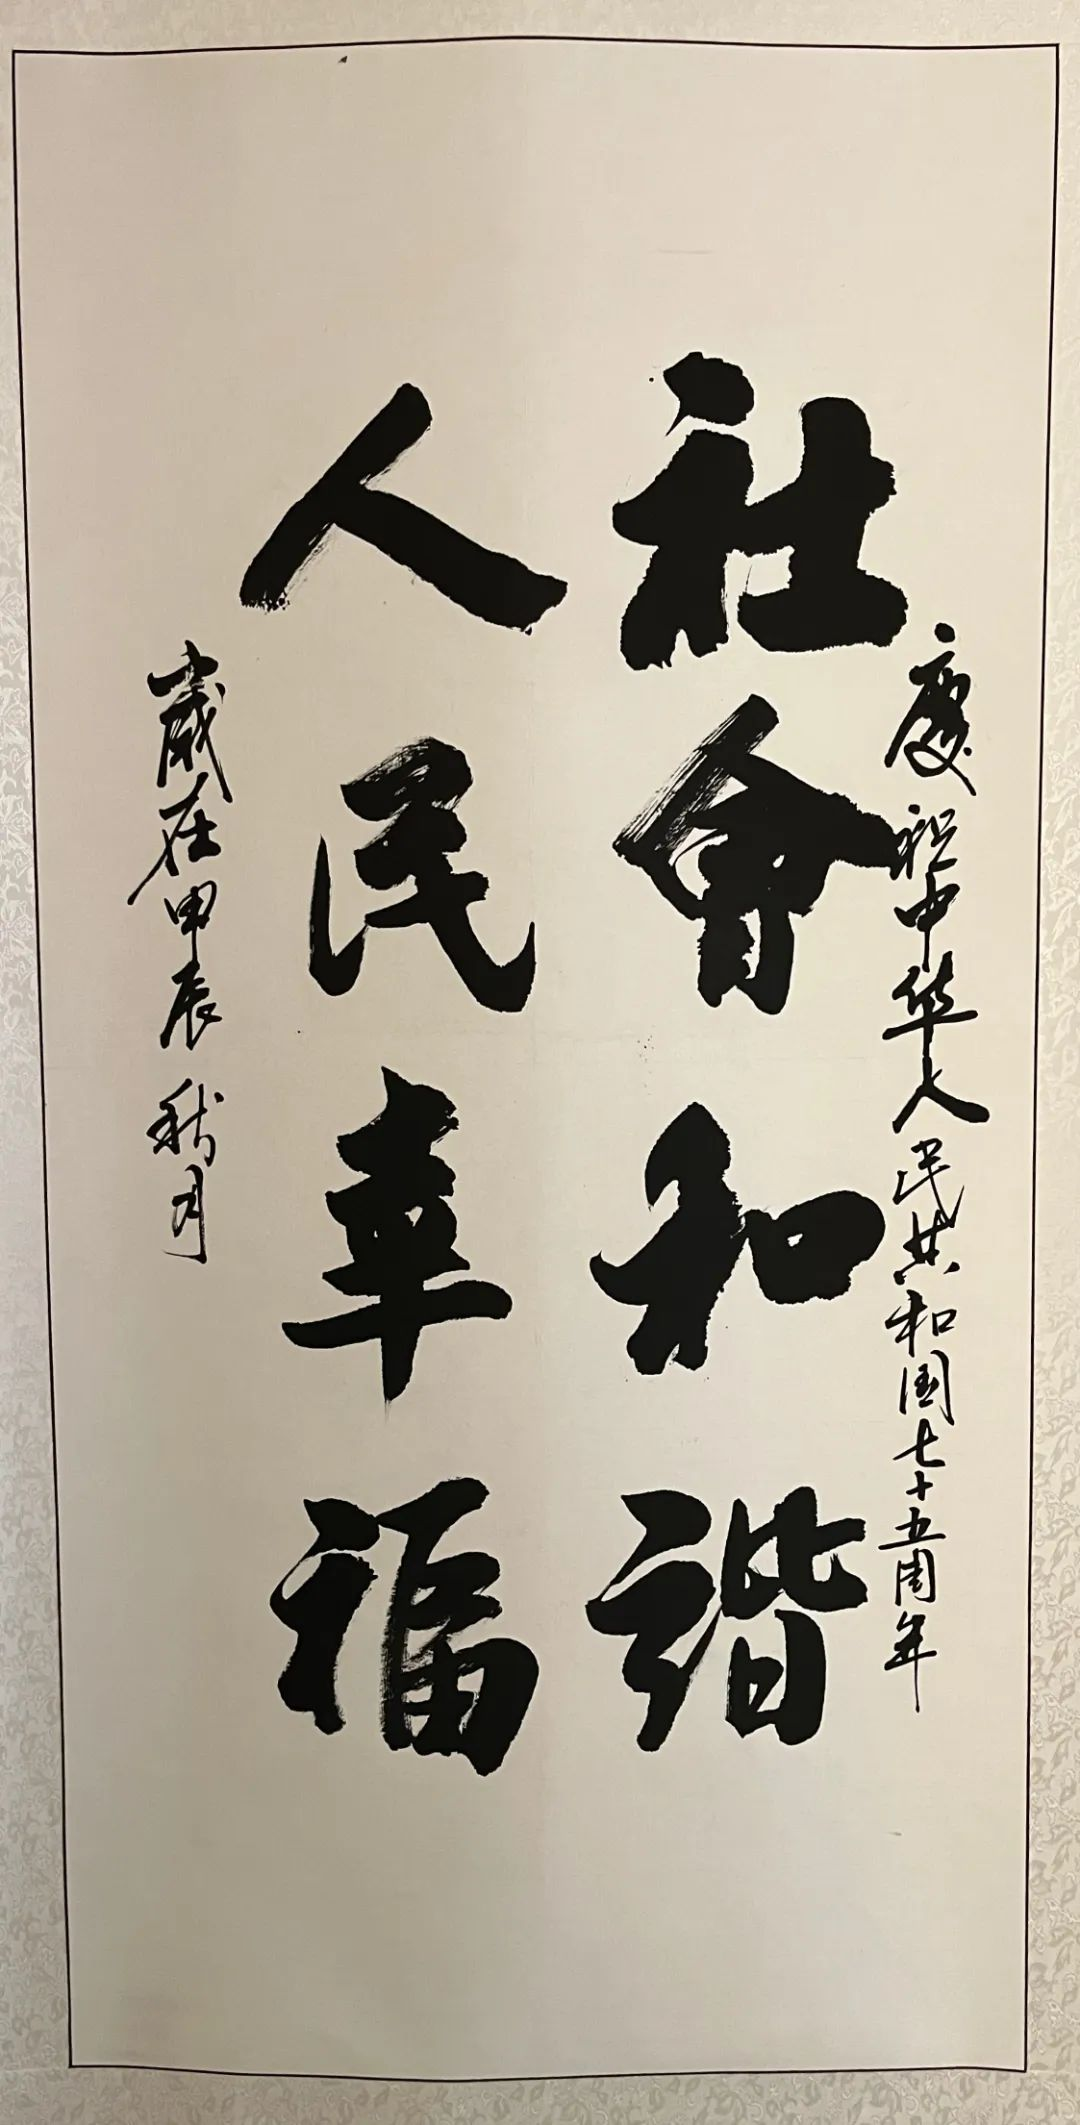 慶祝中华人民共和国七十五周年
社會和谐
人民幸福
歲在甲辰秋月